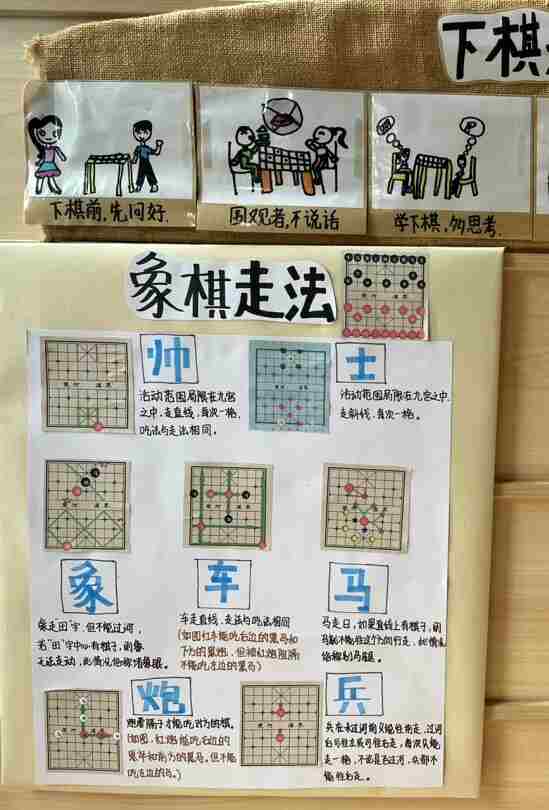 下棋
下棋前,先问好.
围观者,不说话
学下棋,多思考.
象棋走法
帅
活动范围局限在九宫
之中,走直线,每次一格,
吃法与走法相同。
士
活动范围局限在九宫之中,
走斜线,每次一格。
象
象走"田"字,但不能过河,
若"田"字中心有棋子,则象
无法走动,此情况俗称堵象眼。
车
车走直线,走法与吃法相同
(如图红车能吃右边的黑马和
下方的黑炮,但被红炮阻隔
不能吃左边的黑马)
马
马走日,如果直线上有棋子,则
马就不能往这个方向行走,此情况
俗称别马腿。
炮
炮需隔子才能吃对方的棋,
(如图,红炮能吃右边的
黑卒和前方的黑马。但不能
吃左边的马。)
兵
兵在未过河前只能往前走,过河
后可往左或可往右走,每次只能
走一格,不论是否过河,兵都不
能往后走。